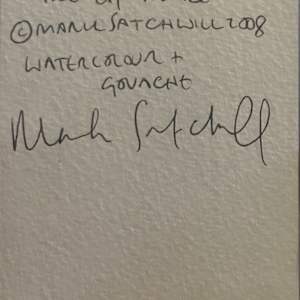 © MARK SATCHWILL 2008
WATERCOLOUR +
GOUACHE
Mark Satchwill